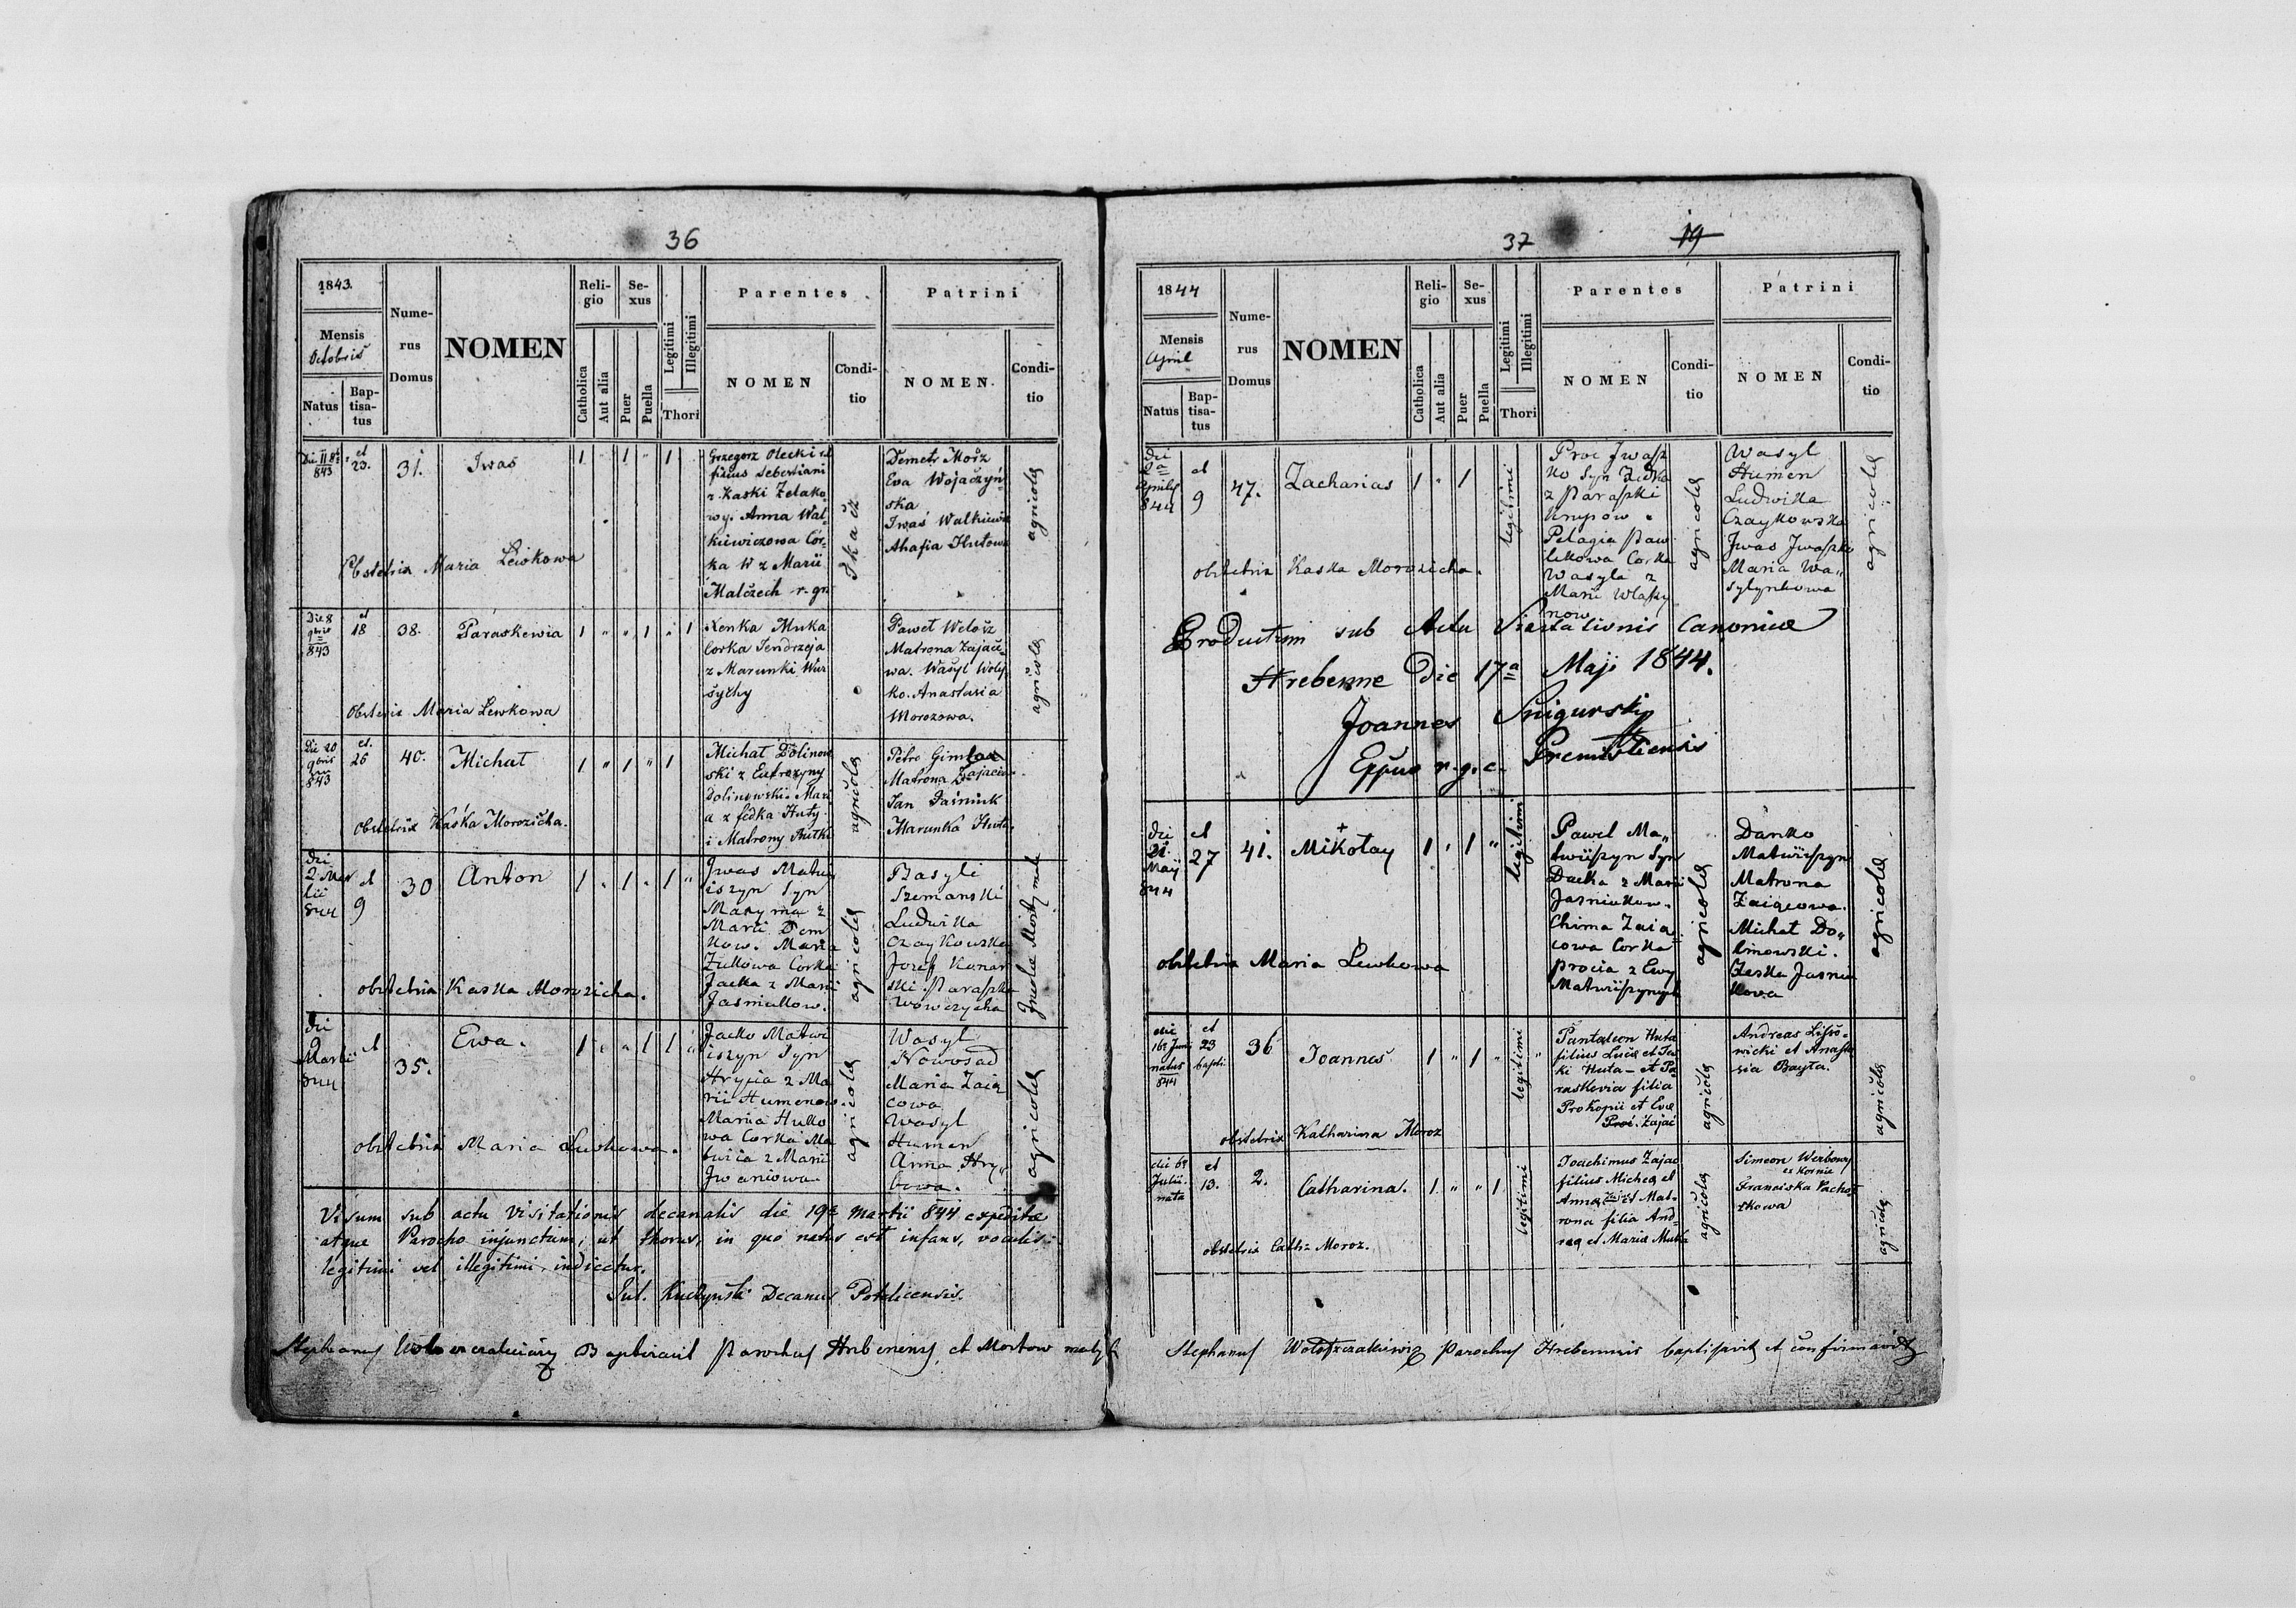 36
1843.
Mensis
Octobris
Natus
Baptisatus
Numerus Domus
NOMEN
Religio
Catholica
Aut alia
Sexus
Puer
Puella
Legitimi
Illegitimi
Thori
Parentes
NOMEN
Conditio
Patrini
NOMEN.
Conditio
843
et
23.
31.
Iwaś
1
1
1
Grzegorz Olecki
filius Sebestiani
z Kaski Żelako-
wy. Anna Wal-
kiewiczowa Cór-
ka W z Marii
Malczech r. gr.
Tkacz
Demetr Morz
Eva Wojaczyń-
ska
Iwaś Walkiewicz
Ahafia Hutowa
agricolæ
Obstetrix Maria Lewkowa
Die 8
9bris
843
et
18
38.
Paraskewia
1 " " 1 " 1
Xenka Muka
Corka Jendrzeja
z Marunki
Paweł Welosz
Matrona Zajacz-
wa. Wasyl Woly-
ko. Anastasia
Morozowa.
agricolæ
Obstetrix Maria Lewkowa
Die 20
9bris
843
et.
26
40.
Michał
1 " 1 " 1
Michał Dolinow-
ski z Eufrozyny
Dolinowski. Mari-
a z fedka Huty
i Matrony Rutki
agricolæ
Petro Gimlar
Matrona Zajacz.
Jan Jaśniuk
Marunka Huta
Obstetrix Kaśka Morozicha.
Die
2 Mar
tii
844
et
9
30
Anton
1 . 1 . 1 "
Jwas Matwi
iszyn Syn
Maxyma z
Marii Dem
kow. Maria
Zukowa Corka
Jacka z Marii
Jasniukow.
agricolæ
Basyli
Szemanski
Ludwika
Czaykowska
Jozef Konar
ski. Paraska
Wowczycha
obstetrix Kaska Morozicha.
die
9
Martii
844
et
35.
Ewa.
1 " " 1 1 "
Jacko Matwi
iszyn Syn
Hrycia z Ma
rii Humenow.
Maria Hutko
wa Corka Ma
twia z Marii
Jwaniowa.
agricolæ
Wasyl
Nowosad
Maria Zaią
cowa
Wasyl
Humen
Anna Hry
cowa.
agricolæ
obstetrix Maria Lewkowa.
Visum sub actu Visitationis decanalis die 19a Martii 844 expeditæ
atque Parocho injunctum, ut thorus, in quo natus est infans, vocalis
legitimi vel illegitimi indicetur.
Decanus Potelicensis.
Baptisavit Parochus
37
19
1844
Mensis
April
Natus
Baptisatus
Numerus Domus
NOMEN
Religio
Catholica
Aut alia
Sexus
Puer
Puella
Legitimi
Illegitimi
Thori
Parentes
NOMEN
Conditio
Patrini
NOMEN
Conditio
die
2a
Aprily
844
et
9
47.
Zacharias
1 . 1
legitimi
Proc Jwasz
ko Syn Fedka
z Paraski
Krupow.
Pelagia Paw
lukowa Corka
Wasyla z
Marii Wlaszy
now
agricolæ
Wasyl
Humen
Ludwika
Czaykowska
Jwas Jwaszko
Maria Wa„
sylynkowa
agricolæ
obstetrix Kaska Morozicha.
Productum sub Actu Visitationis Canonicæ
Hrebenne Die 17a Maji 1844.
Joannes Snigurski
Eppus r. g. c. Premisliensis
die
21
Maij
844
et
27
41.
Mikołay
1 . 1 "
legitimi
Pawel Ma„
twiiszyn Syn
Dacka z Marii
Jasniukow.
Chima Zaia
cowa Corka
Procia z Ewy
Matwiiszynych
agricolæ
Danko
Matwiiszyn
Matrona
Zaiącowa.
Michał Do„
linowski.
Jaśniu
kowa
agricolæ
obstetrix Maria Lewkowa
die
16a Junii
natus
844
et
23
bapti.
36
Joannes
1 " 1 "
legitimi
Pantaleon Huta
filius Lucæ et
Huta - et Pa
raskevia filia
Prokopii et Evæ
Proć. Zając
agricolæ
Andreas
wicki et Anasta
sia Bayta.
agricolæ
obstetrix Katharina Moroz
die 6a
Julii
nata
et
13.
2.
Catharina.
1 " " 1
legitimi
Joachimus Zając
filius Michea et
Anna Zając et Mat-
rona filia And-
rea et Maria Muka
agricolæ
Simeon Werbowy
ex Kornie
Franciska Pachoł
kowa
agricolæ
obstetrix Cath: Moroz.
Stephanus Wołoszczakiewicz Parochus Hrebennis baptisavit et confirmavit